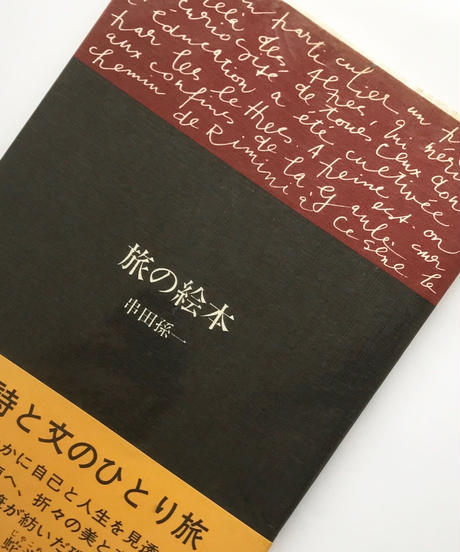 en particulier un
delà des Alpes, qui méri
curiosité de tous ceux don
l'éducation a été cultivée
par les lettres. A peine est-on
aux confins de la Gaule, sur
chemin de Rimini à Césène le
旅の絵本
串田孫一
詩と文のひとり旅
かに自己と人生を見透
へ、折々の美と
が紡いだ